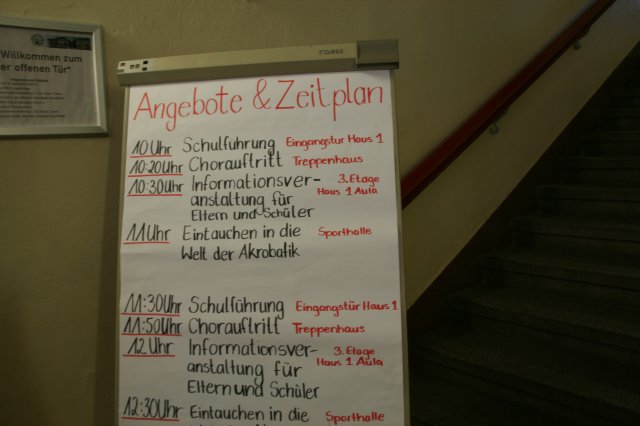 Willkommen zum
er offenen Tür"
DAHLE
Angebote & Zeitplan
10 Uhr Schulführung Eingangstür Haus 1
10:20 Uhr Chorauftritt Treppenhaus
10:30 Uhr Informationsver- 3. Etage
anstaltung für Haus 1 Aula
Eltern und Schüler
11 Uhr Eintauchen in die Sporthalle
Welt der Akrobatik
11:30 Uhr Schulführung Eingangstür Haus 1
11:50 Uhr Chorauftritt Treppenhaus
12 Uhr Informationsver- 3. Etage
anstaltung für Haus 1 Aula
Eltern und Schüler
12:30 Uhr Eintauchen in die Sporthalle